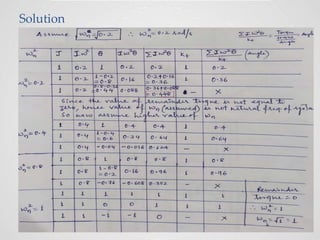 Solution
Assume √ωn² = √0.2 ∴ ωn² = 0.2 rad/s
ΣIω²θ / kt = Torque / (angle)
ωn² J Iω² θ Iω²θ ΣIω²θ kt ΣIω²θ/kt (angle)
1 0.2 1 0.2 0.2 1 0.2
ωn² = 0.2 1 0.2 1-0.2 = 0.8 0.16 0.2+0.16 = 0.36 1 0.36
1 0.2 0.8-0.36 = 0.44 0.088 0.36+0.088 = 0.448 - ×
Since the value of remainder torque is not equal to
zero, hence value of ωn (assumed) is not natural freq of
So now assume higher value of ωn
1 0.4 1 0.4 0.4 1 0.4
ωn² = 0.4 1 0.4 1-0.4 = 0.6 0.24 0.64 1 0.64
1 0.4 -0.04 -0.016 0.624 - ×
1 0.8 1 0.8 0.8 1 0.8
ωn² = 0.8 1 0.8 1-0.8 = 0.2 0.16 0.96 1 0.96
1 0.8 -0.76 -0.608 0.352 - ×
1 1 1 1 1 1 1
ωn² = 1 1 1 0 0 1 1 1
1 1 -1 -1 0 - ×
Remainder
torque = 0
∴ ωn² = 1
ωn = √1 = 1